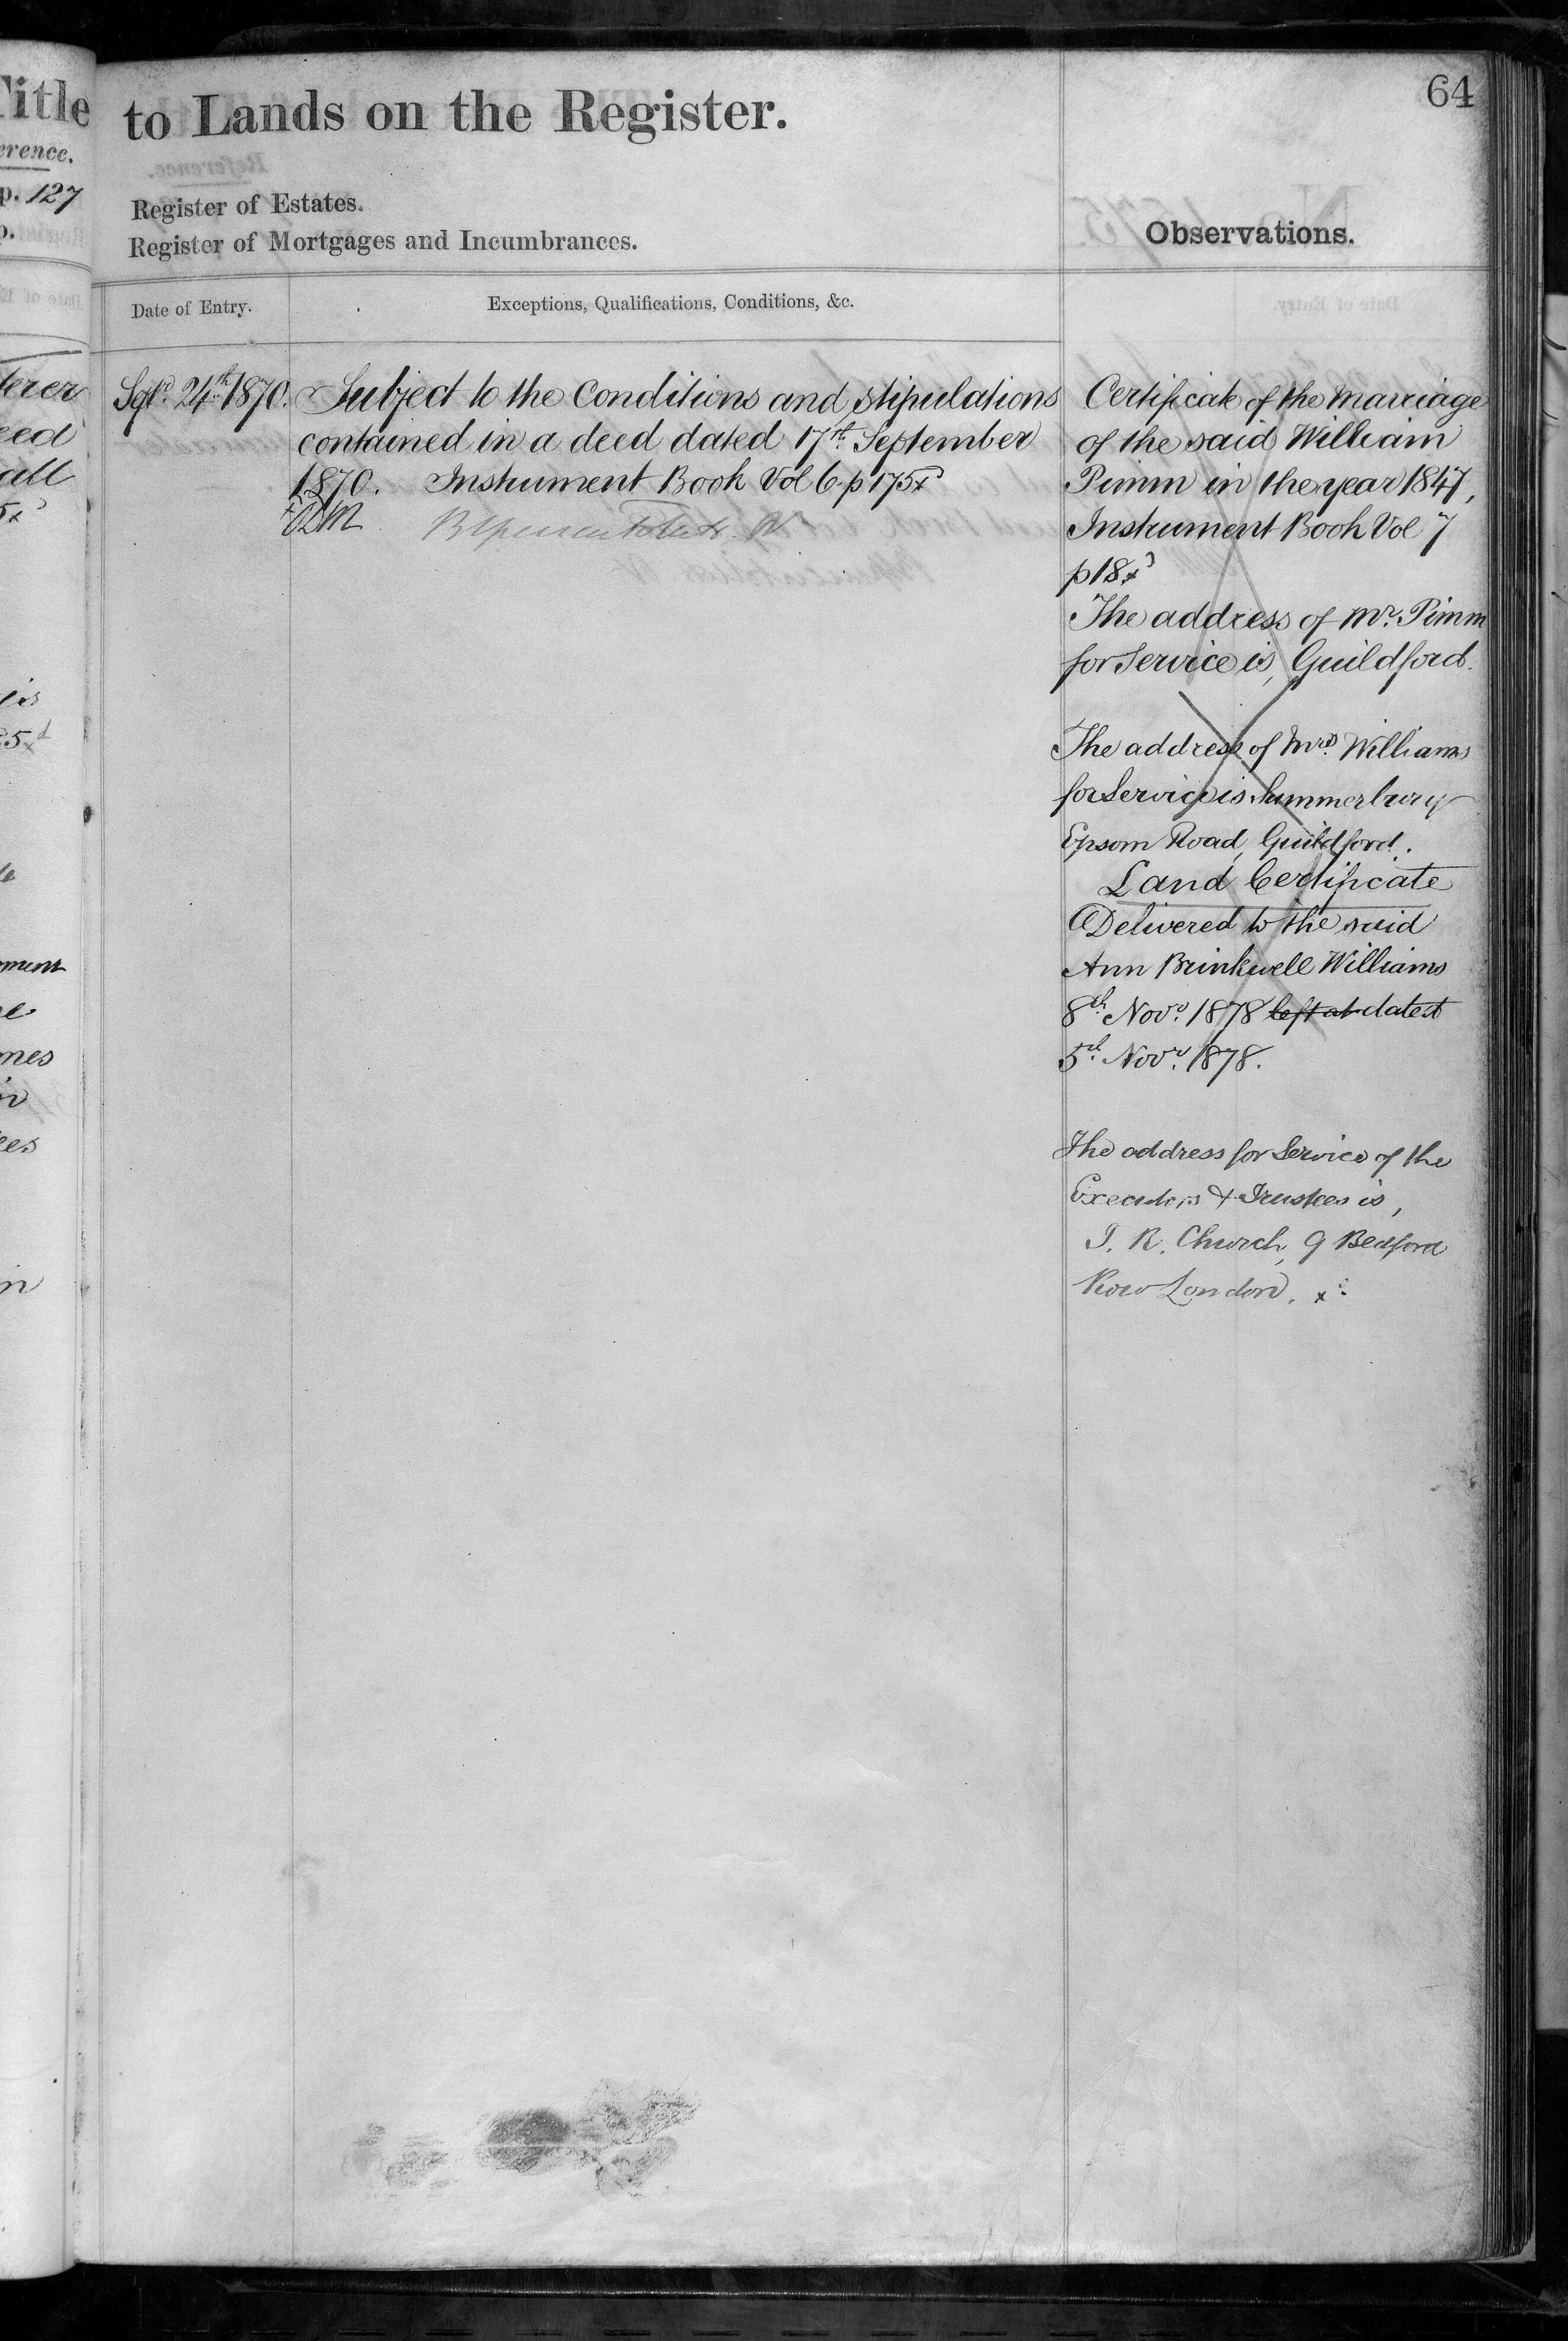 Title
erence.
p. 127
p.
to Lands on the Register.
64
Register of Estates.
Register of Mortgages and Incumbrances.
Observations.
Date of Entry.
Exceptions, Qualifications, Conditions, &c.
Sept. 24th 1870.
Subject to the Conditions and stipulations
contained in a deed dated 17th September
1870. Instrument Book Vol 6 p 175
Certificate of the Marriage
of the said William
Pimm in the year 1847,
Instrument Book Vol 7
p 18
The address of Mr. Pimm
for Service is, Guildford.
The address of Mrs. Williams
for Service is Summerbury
Epsom Road, Guildford.
Land Certificate
Delivered to the said
Ann Brinkwell Williams
8th Novr. 1878 left at dated
5th Novr. 1878.
The address for Service of the
Executors & Trustees is,
J. R. Church, 9 Bedford
Row London.